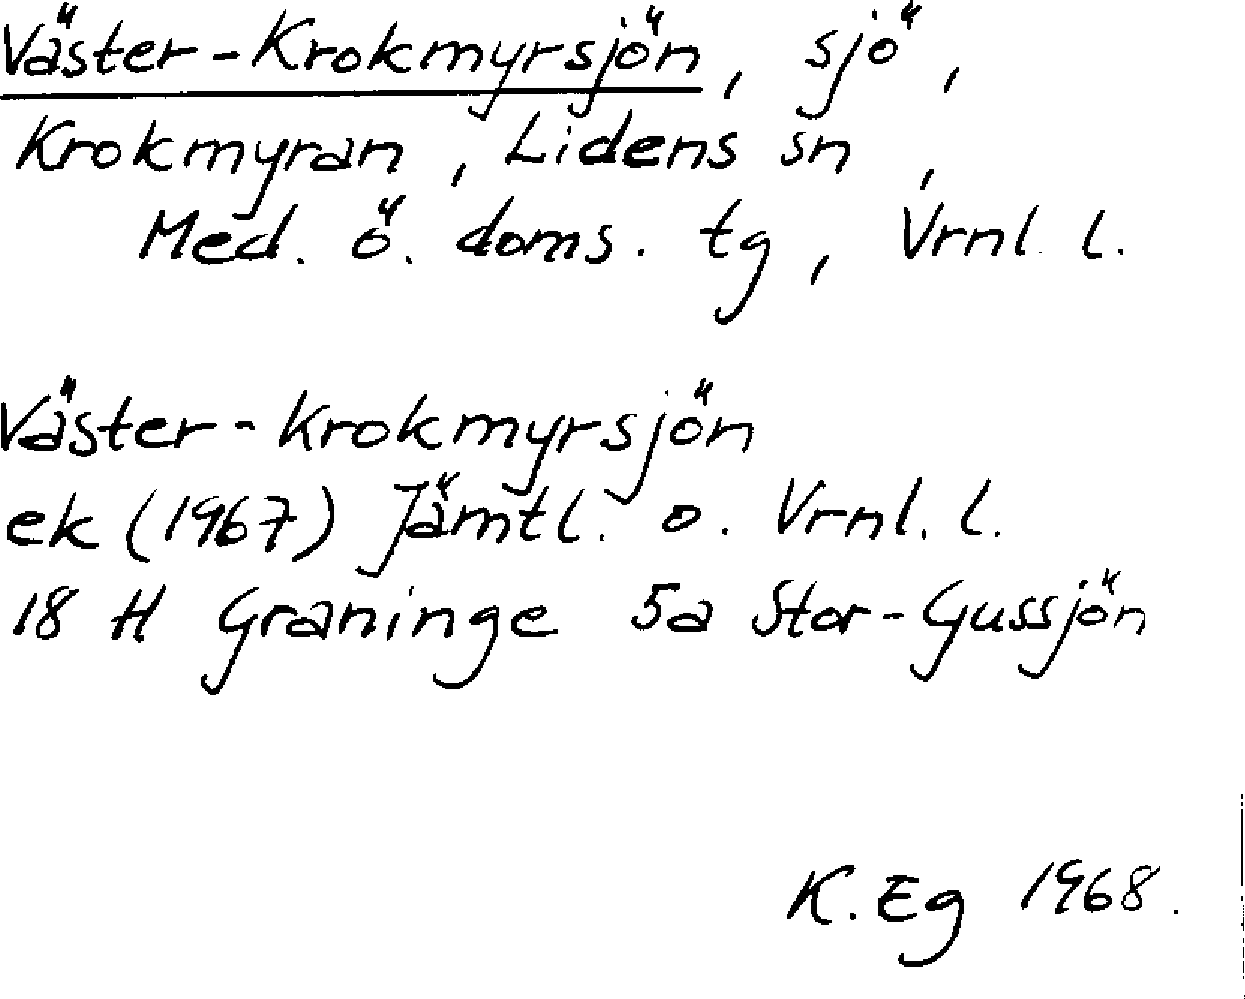 Väster-Krokmyrsjön, sjö,
Krokmyran, Lidens sn,
Med. ö. doms. tg, Vrnl. l.
Väster-Krokmyrsjön
ek (1967) Jämtl. o. Vrnl. l.
18 H Graninge 5a Stor-Gussjön
K. Eg 1968.